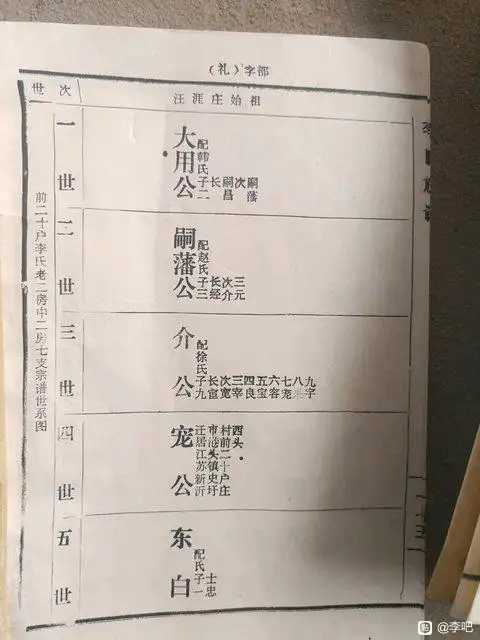 （礼）字部
世次
汪涯庄始祖
前二十户李氏老二房中二房七支宗谱世系图
一世
大用公
配韩氏
子二
长嗣昌
次嗣藩
二世
嗣藩公
配赵氏
子三
长经
次介
三元
三世
介公
配徐氏
子九
长富
次宽
三宰
四良
五宝
六容
七宠
八
九字
四世
宠公
迁居江苏新沂
市港头镇史圩
村前二十户庄
西头
五世
东白
配氏子一
士忠
@李吧